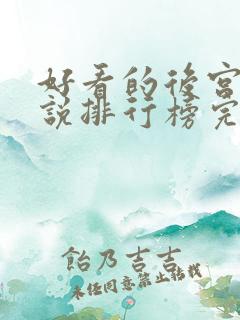 好看的後宮
說排行榜完
飴乃吉吉
未經同意禁止轉載